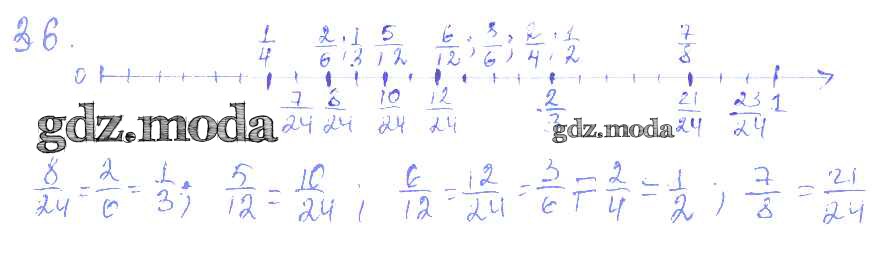 36.
1/4 2/6; 1/3 5/12 6/12; 3/6; 2/4; 1/2 7/8
0
7/24 8/24 10/24 12/24 2/3 21/24 23/24 1
gdz.moda gdz.moda
8/24 = 2/6 = 1/3; 5/12 = 10/24; 6/12 = 12/24 = 3/6 = 2/4 = 1/2; 7/8 = 21/24